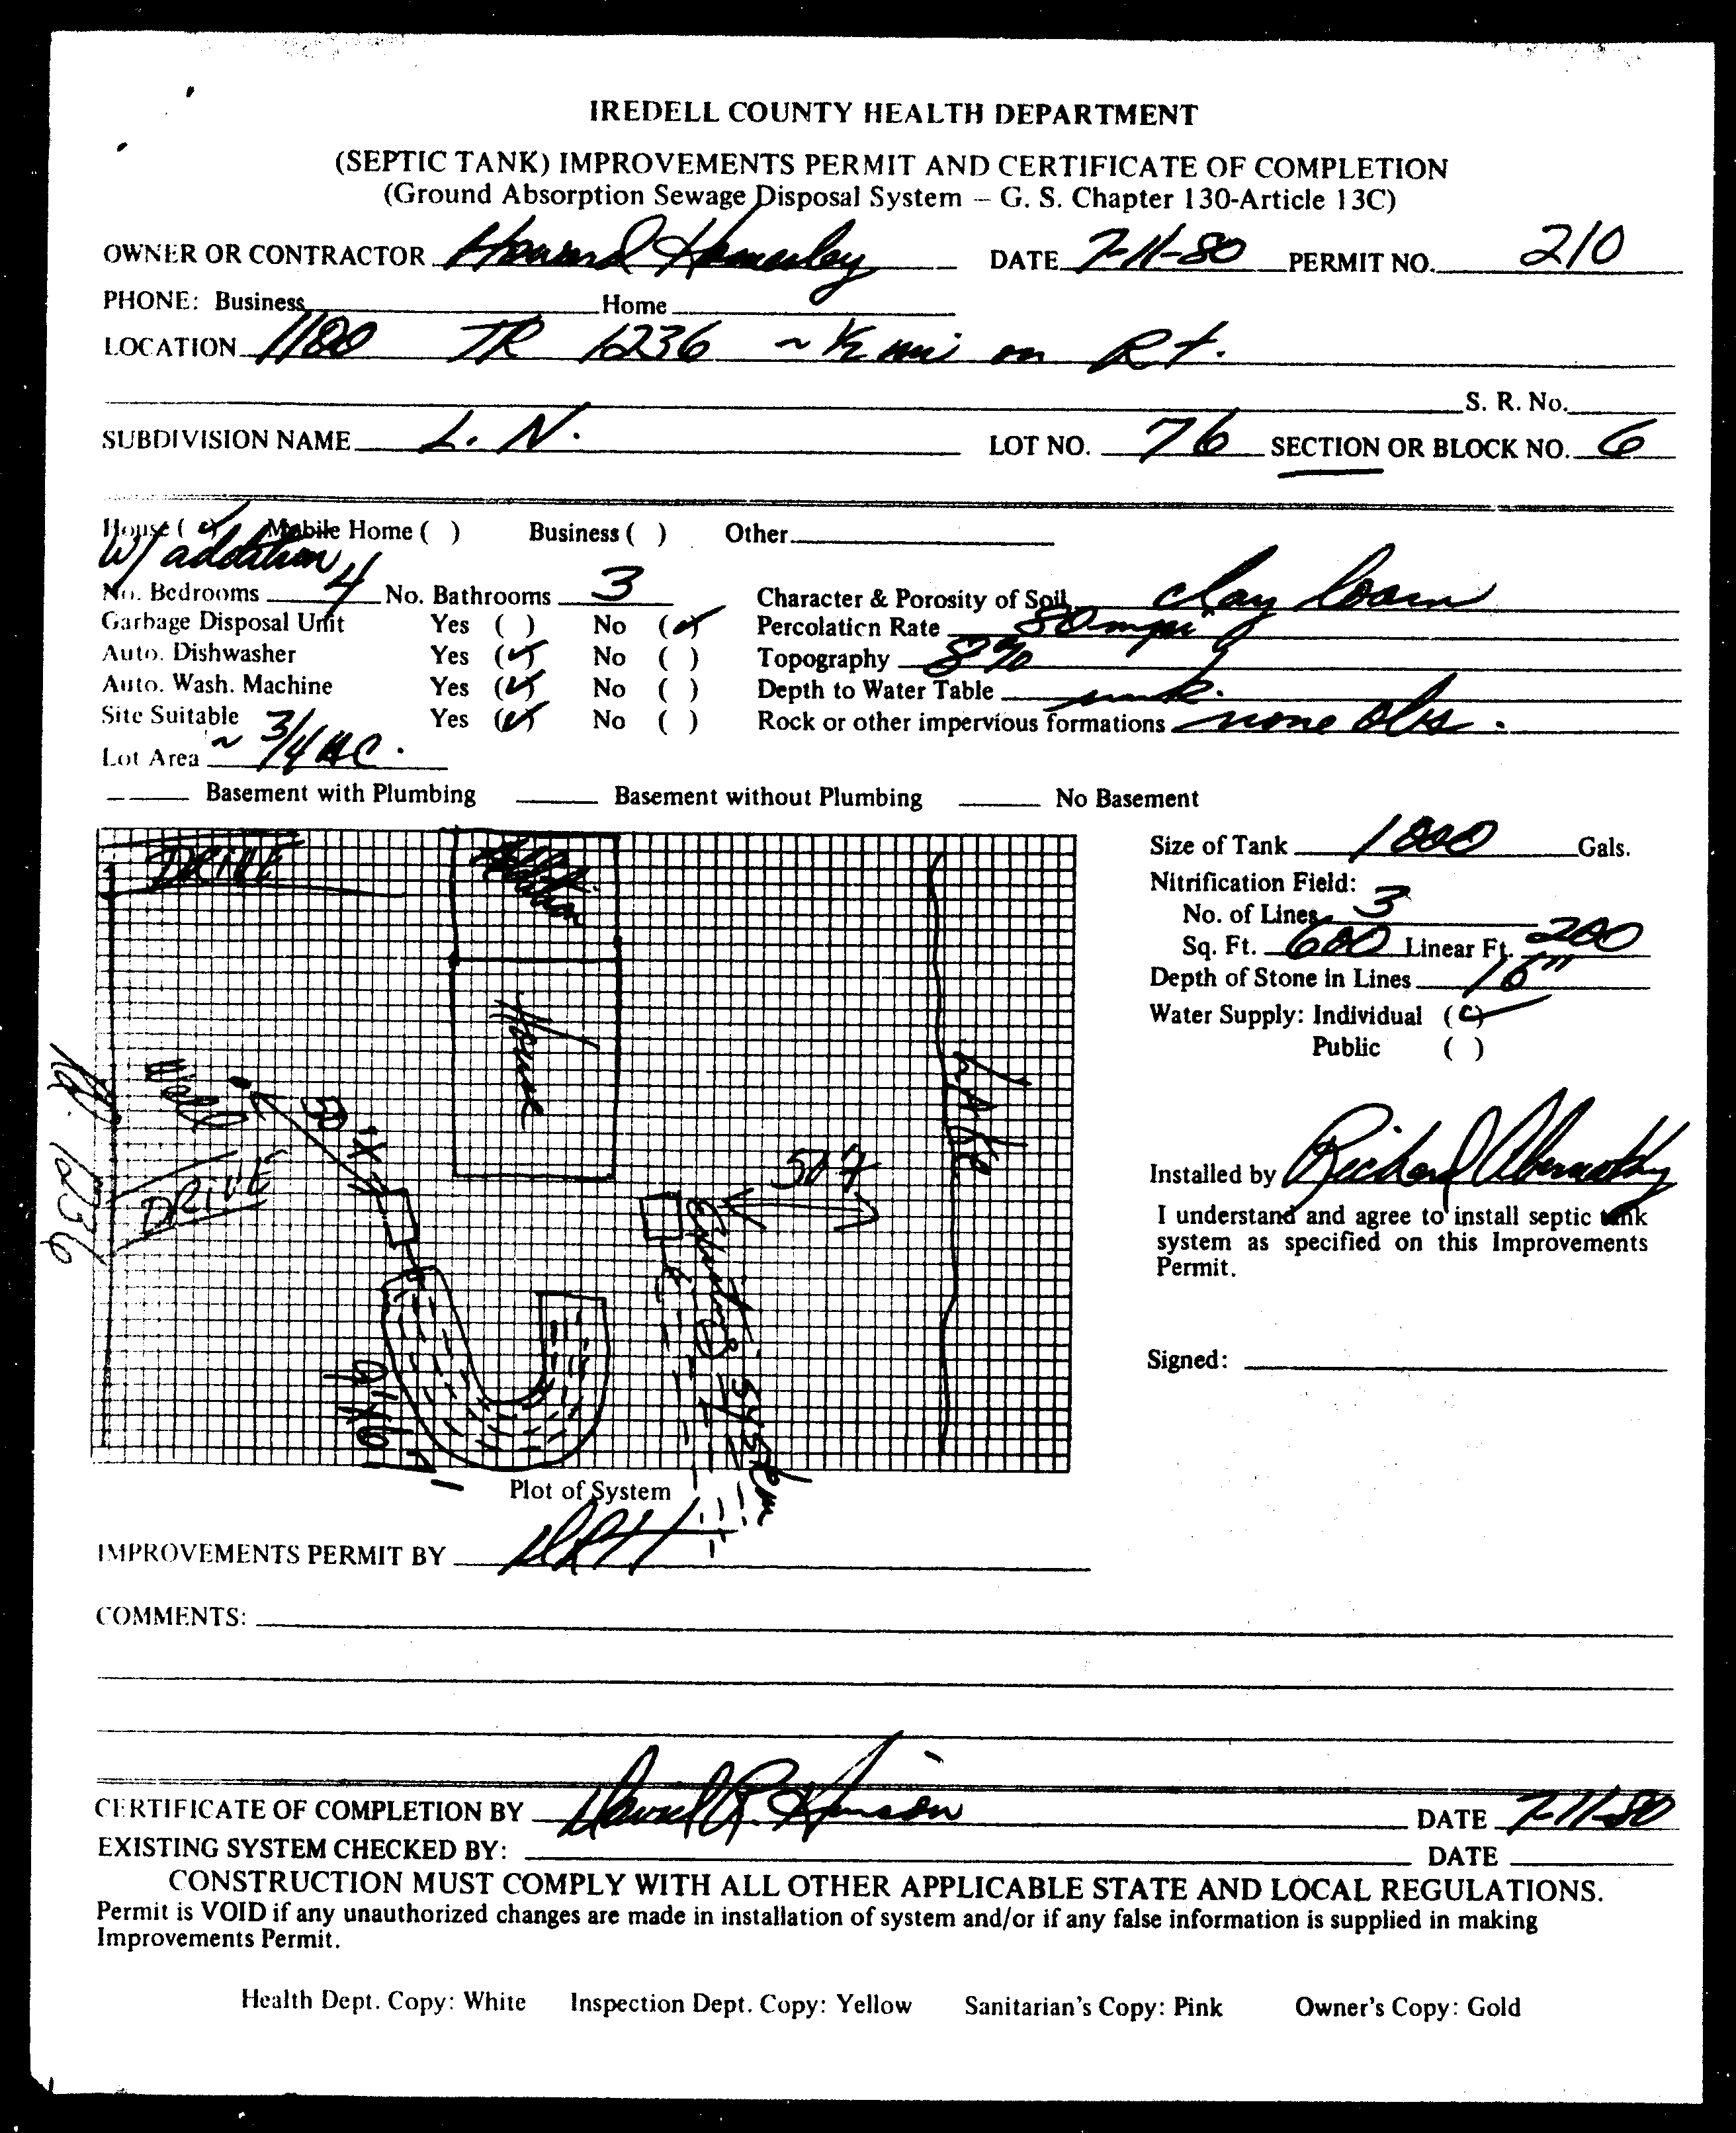 IREDELL COUNTY HEALTH DEPARTMENT
(SEPTIC TANK) IMPROVEMENTS PERMIT AND CERTIFICATE OF COMPLETION
(Ground Absorption Sewage Disposal System – G. S. Chapter 130-Article 13C)
OWNER OR CONTRACTOR Howard DATE 7-11-80 PERMIT NO. 210
PHONE: Business Home
LOCATION 1100 TR 1236 ~ ½ mi on Rt.
S. R. No.
SUBDIVISION NAME L. N. LOT NO. 76 SECTION OR BLOCK NO. 6
House (✓) Mobile Home ( ) Business ( ) Other
W/ addition
No. Bedrooms 4 No. Bathrooms 3 Character & Porosity of Soil clay loam
Garbage Disposal Unit Yes ( ) No (✓) Percolation Rate 50 mpi
Auto. Dishwasher Yes (✓) No ( ) Topography 8%
Auto. Wash. Machine Yes (✓) No ( ) Depth to Water Table unk.
Site Suitable Yes (✓) No ( ) Rock or other impervious formations none obs.
Lot Area ~ 3/4 AC.
Basement with Plumbing Basement without Plumbing No Basement
DRIVE Addition
Size of Tank 1000 Gals.
Nitrification Field:
No. of Lines 3
Sq. Ft. 600 Linear Ft. 200
Depth of Stone in Lines 16"
Water Supply: Individual (✓)
Public ( )
House
LAKE
Well
Rd. 1236
DRIVE
50'
Existing System
Installed by Richard Abernathy
I understand and agree to install septic tank
system as specified on this Improvements
Permit.
Signed:
Plot of System
IMPROVEMENTS PERMIT BY DRH
COMMENTS:
CERTIFICATE OF COMPLETION BY David R. Hinson DATE 7-11-80
EXISTING SYSTEM CHECKED BY: DATE
CONSTRUCTION MUST COMPLY WITH ALL OTHER APPLICABLE STATE AND LOCAL REGULATIONS.
Permit is VOID if any unauthorized changes are made in installation of system and/or if any false information is supplied in making
Improvements Permit.
Health Dept. Copy: White Inspection Dept. Copy: Yellow Sanitarian's Copy: Pink Owner's Copy: Gold